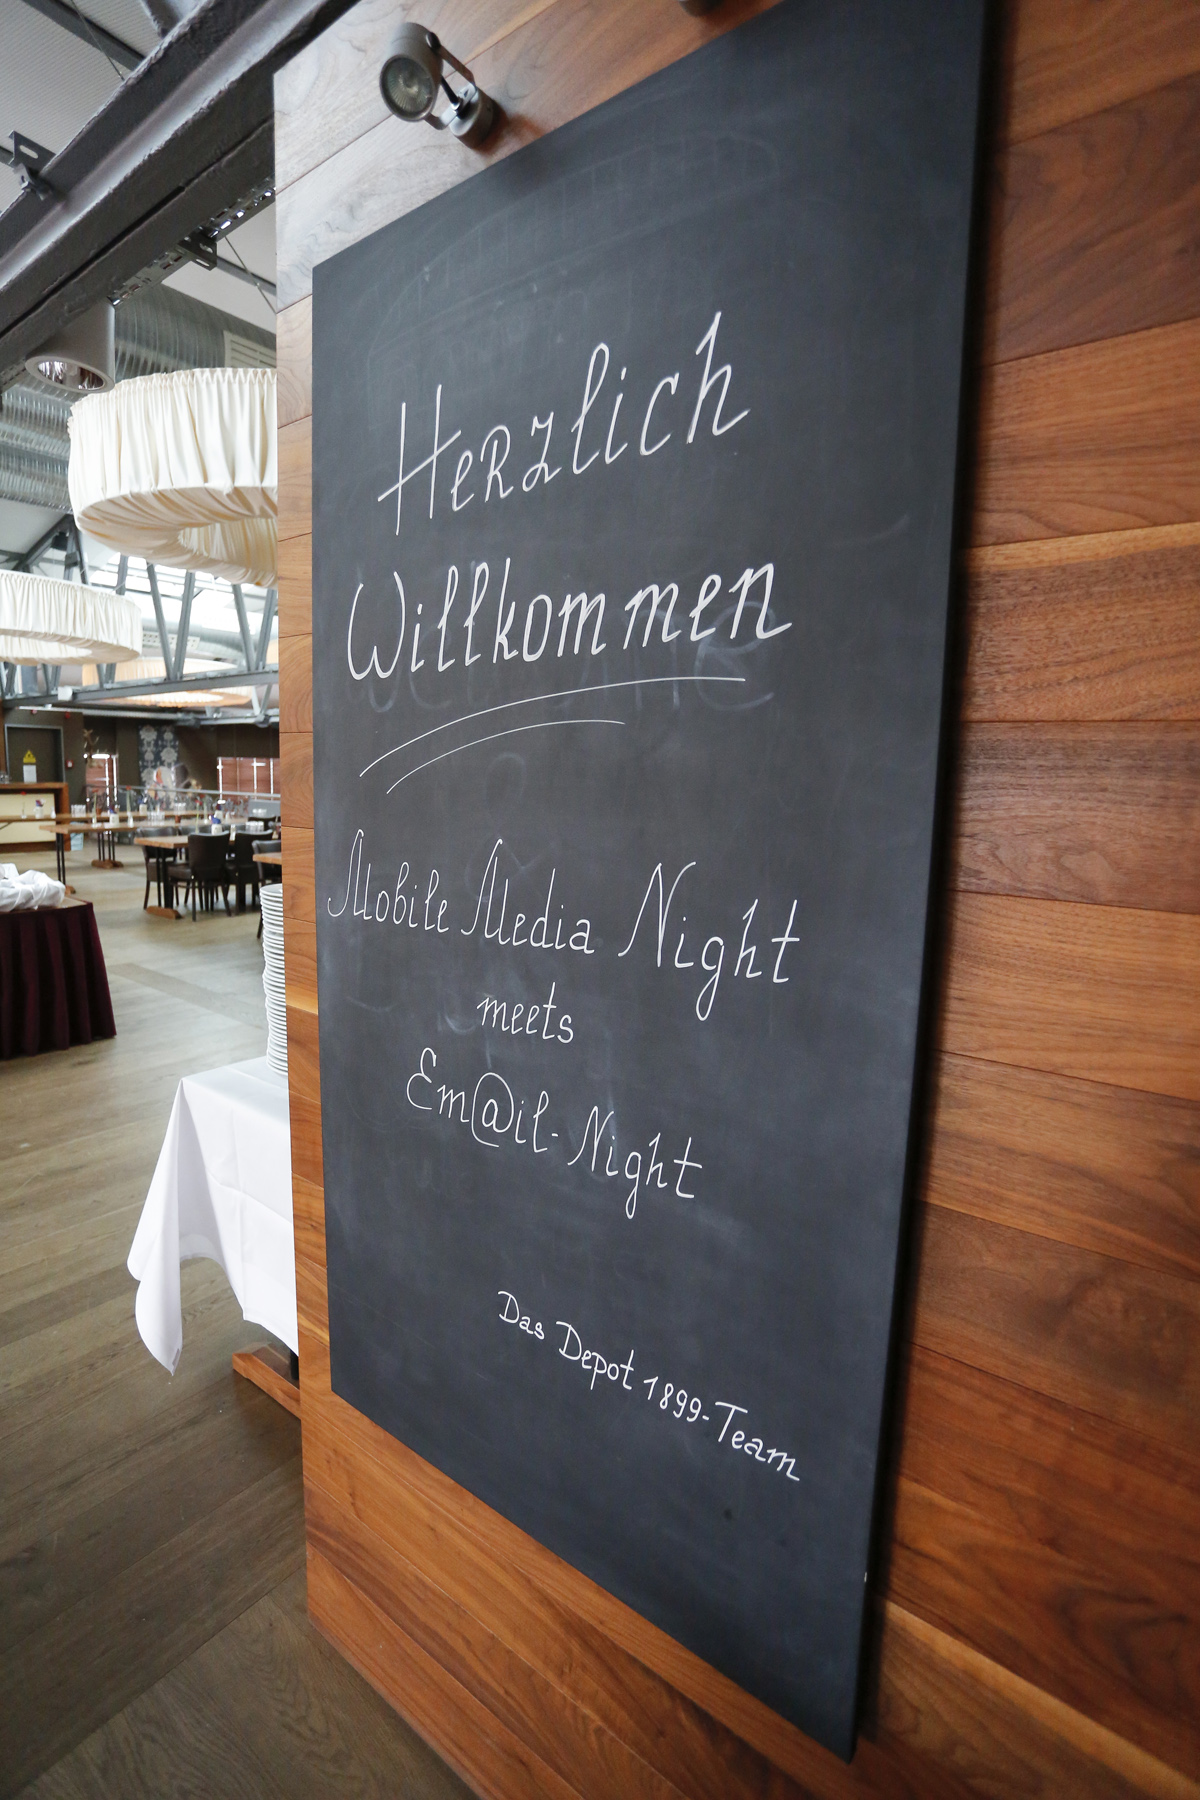 Herzlich
Willkommen
Mobile Media Night
meets
Em@il-Night
Das Depot 1899-Team